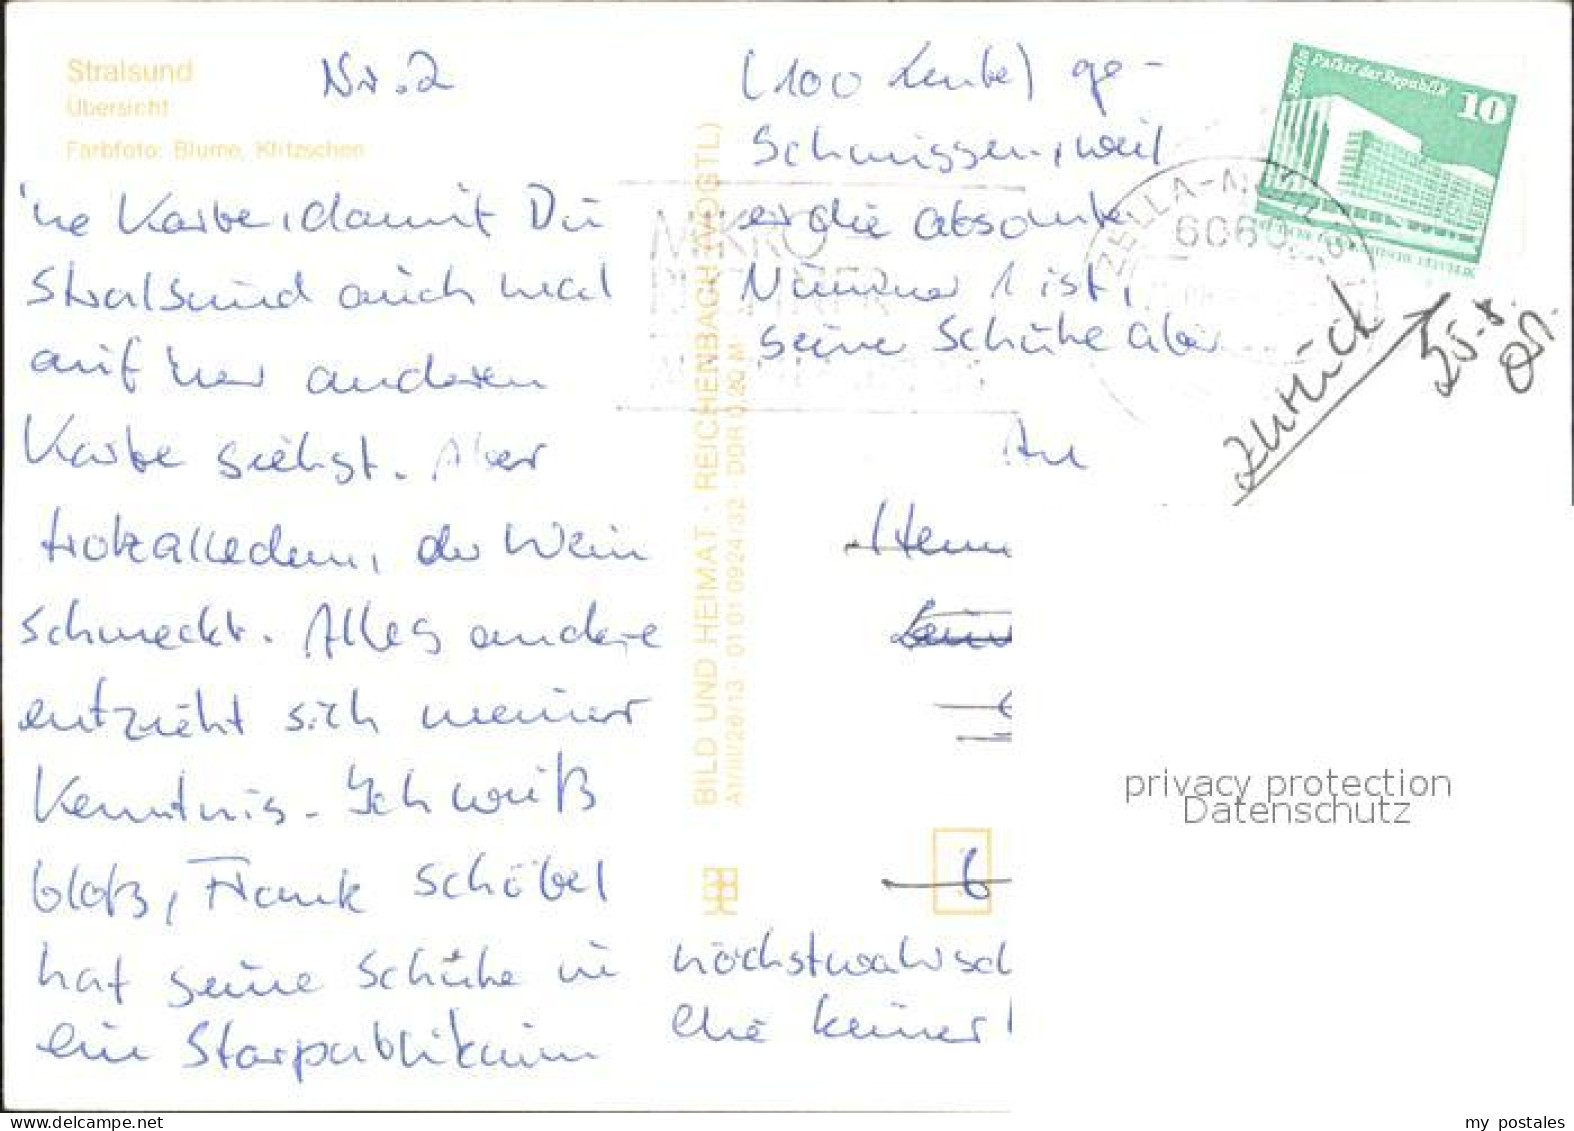 Stralsund
Übersicht
Farbfoto: Blume, Klitzschen
Nr. 2
'ne Karte, damit Du
Stralsund auch mal
auf 'ner anderen
Karte siehst. Aber
trotzalledem, der Wein
schmeckt. Alles andere
entzieht sich meiner
Kenntnis. Ich weiß
bloß, Frank Schöbel
hat seine Schuhe in
ein Starpublikum
(100 Leute) ge-
schmissen, weil
er die absolute
Nummer 1 ist,
seine Schuhe aber
höchstwahrsch
ehe keiner
BILD UND HEIMAT · REICHENBACH (VOGTL)
A1/III/26/13 · 01 01 0924/32 · DDR 0,20 M
Berlin Palast der Republik
10
ZELLA-MEHLIS
6060
MIKRO
zurück
25.8.
An
Herrn
6
privacy protection
Datenschutz
my postales